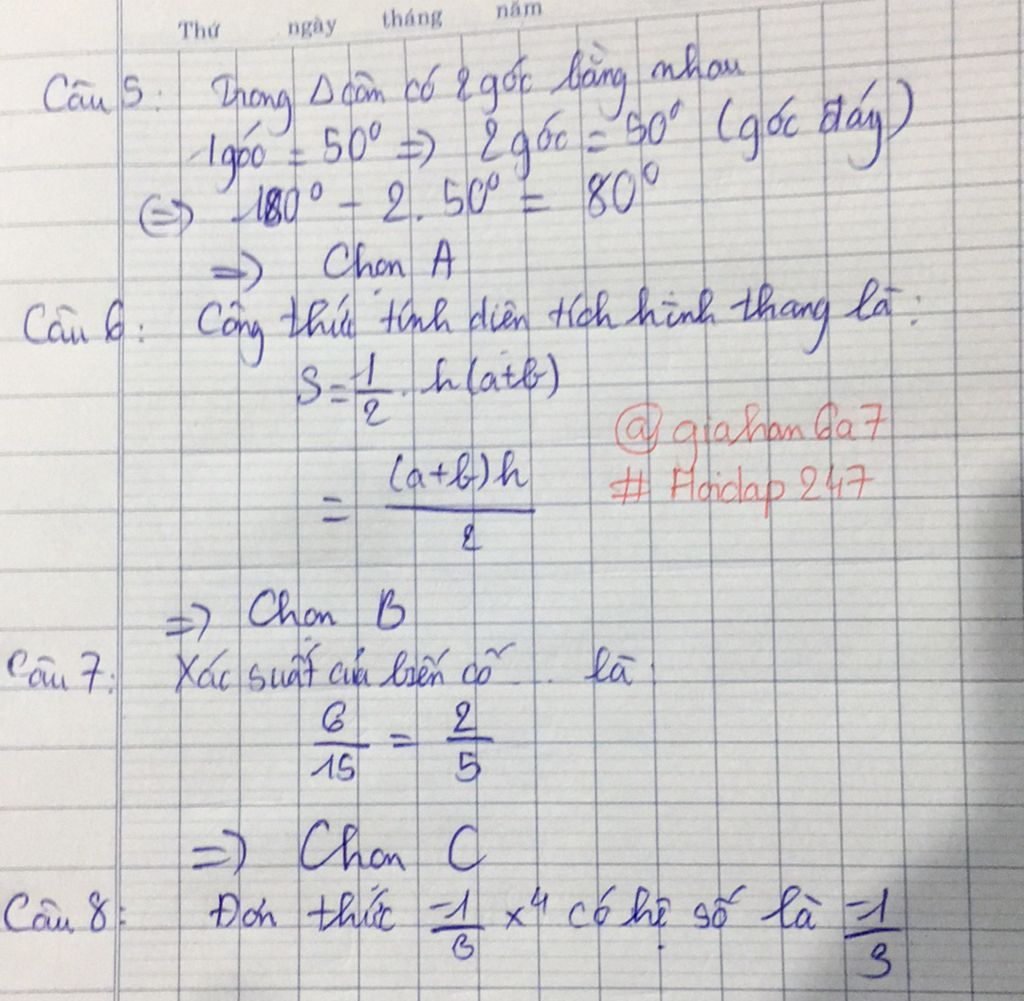 Thứ ngày tháng năm
Câu 5: Trong Δ cân có 2 góc bằng nhau
1 góc = 50⁰ => 2 góc = 50⁰ (góc đáy)
<=> 180⁰ - 2. 50⁰ = 80⁰
=> Chọn A
Câu 6: Công thức tính diện tích hình thang là:
S = 1/2 . h(a+b)
= (a+b)h / 2
@ giahan6a7
# Hoidap247
=> Chọn B
Câu 7: Xác suất của biến cố .. là
6/15 = 2/5
=> Chọn C
Câu 8: Đơn thức -1/3 x⁴ có hệ số là -1/3